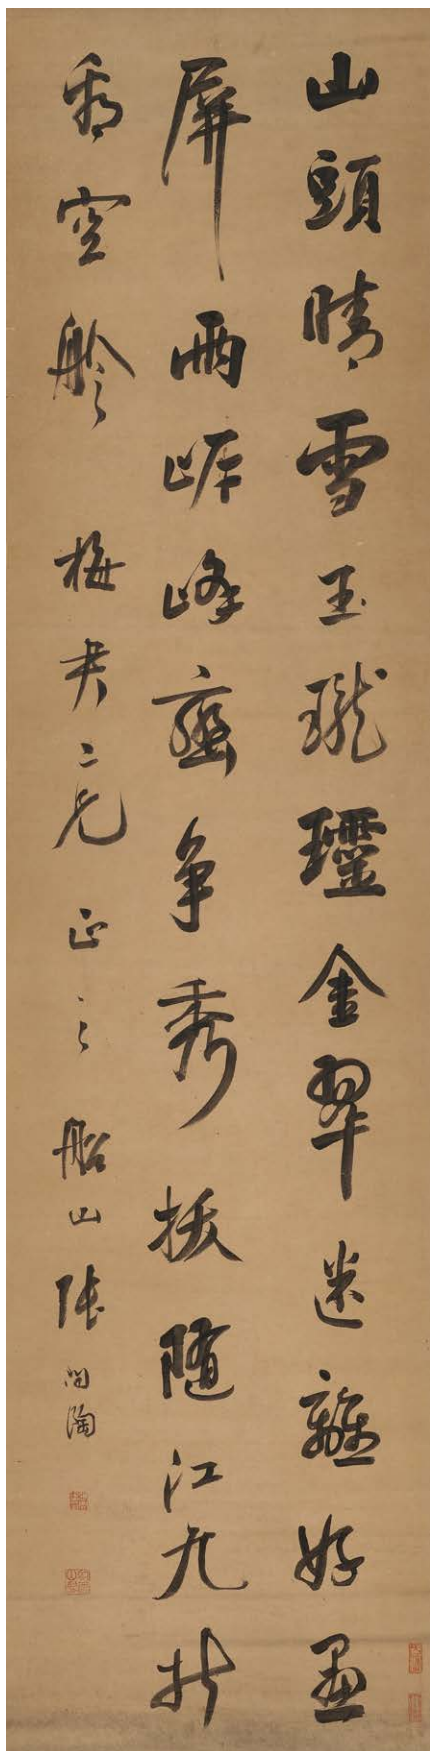 山頭晴雪玉瓏金翠迷離好畫
屏兩岸峰巒争秀拔隨江九折
空舲 梅二兄 正之 船山張問陶